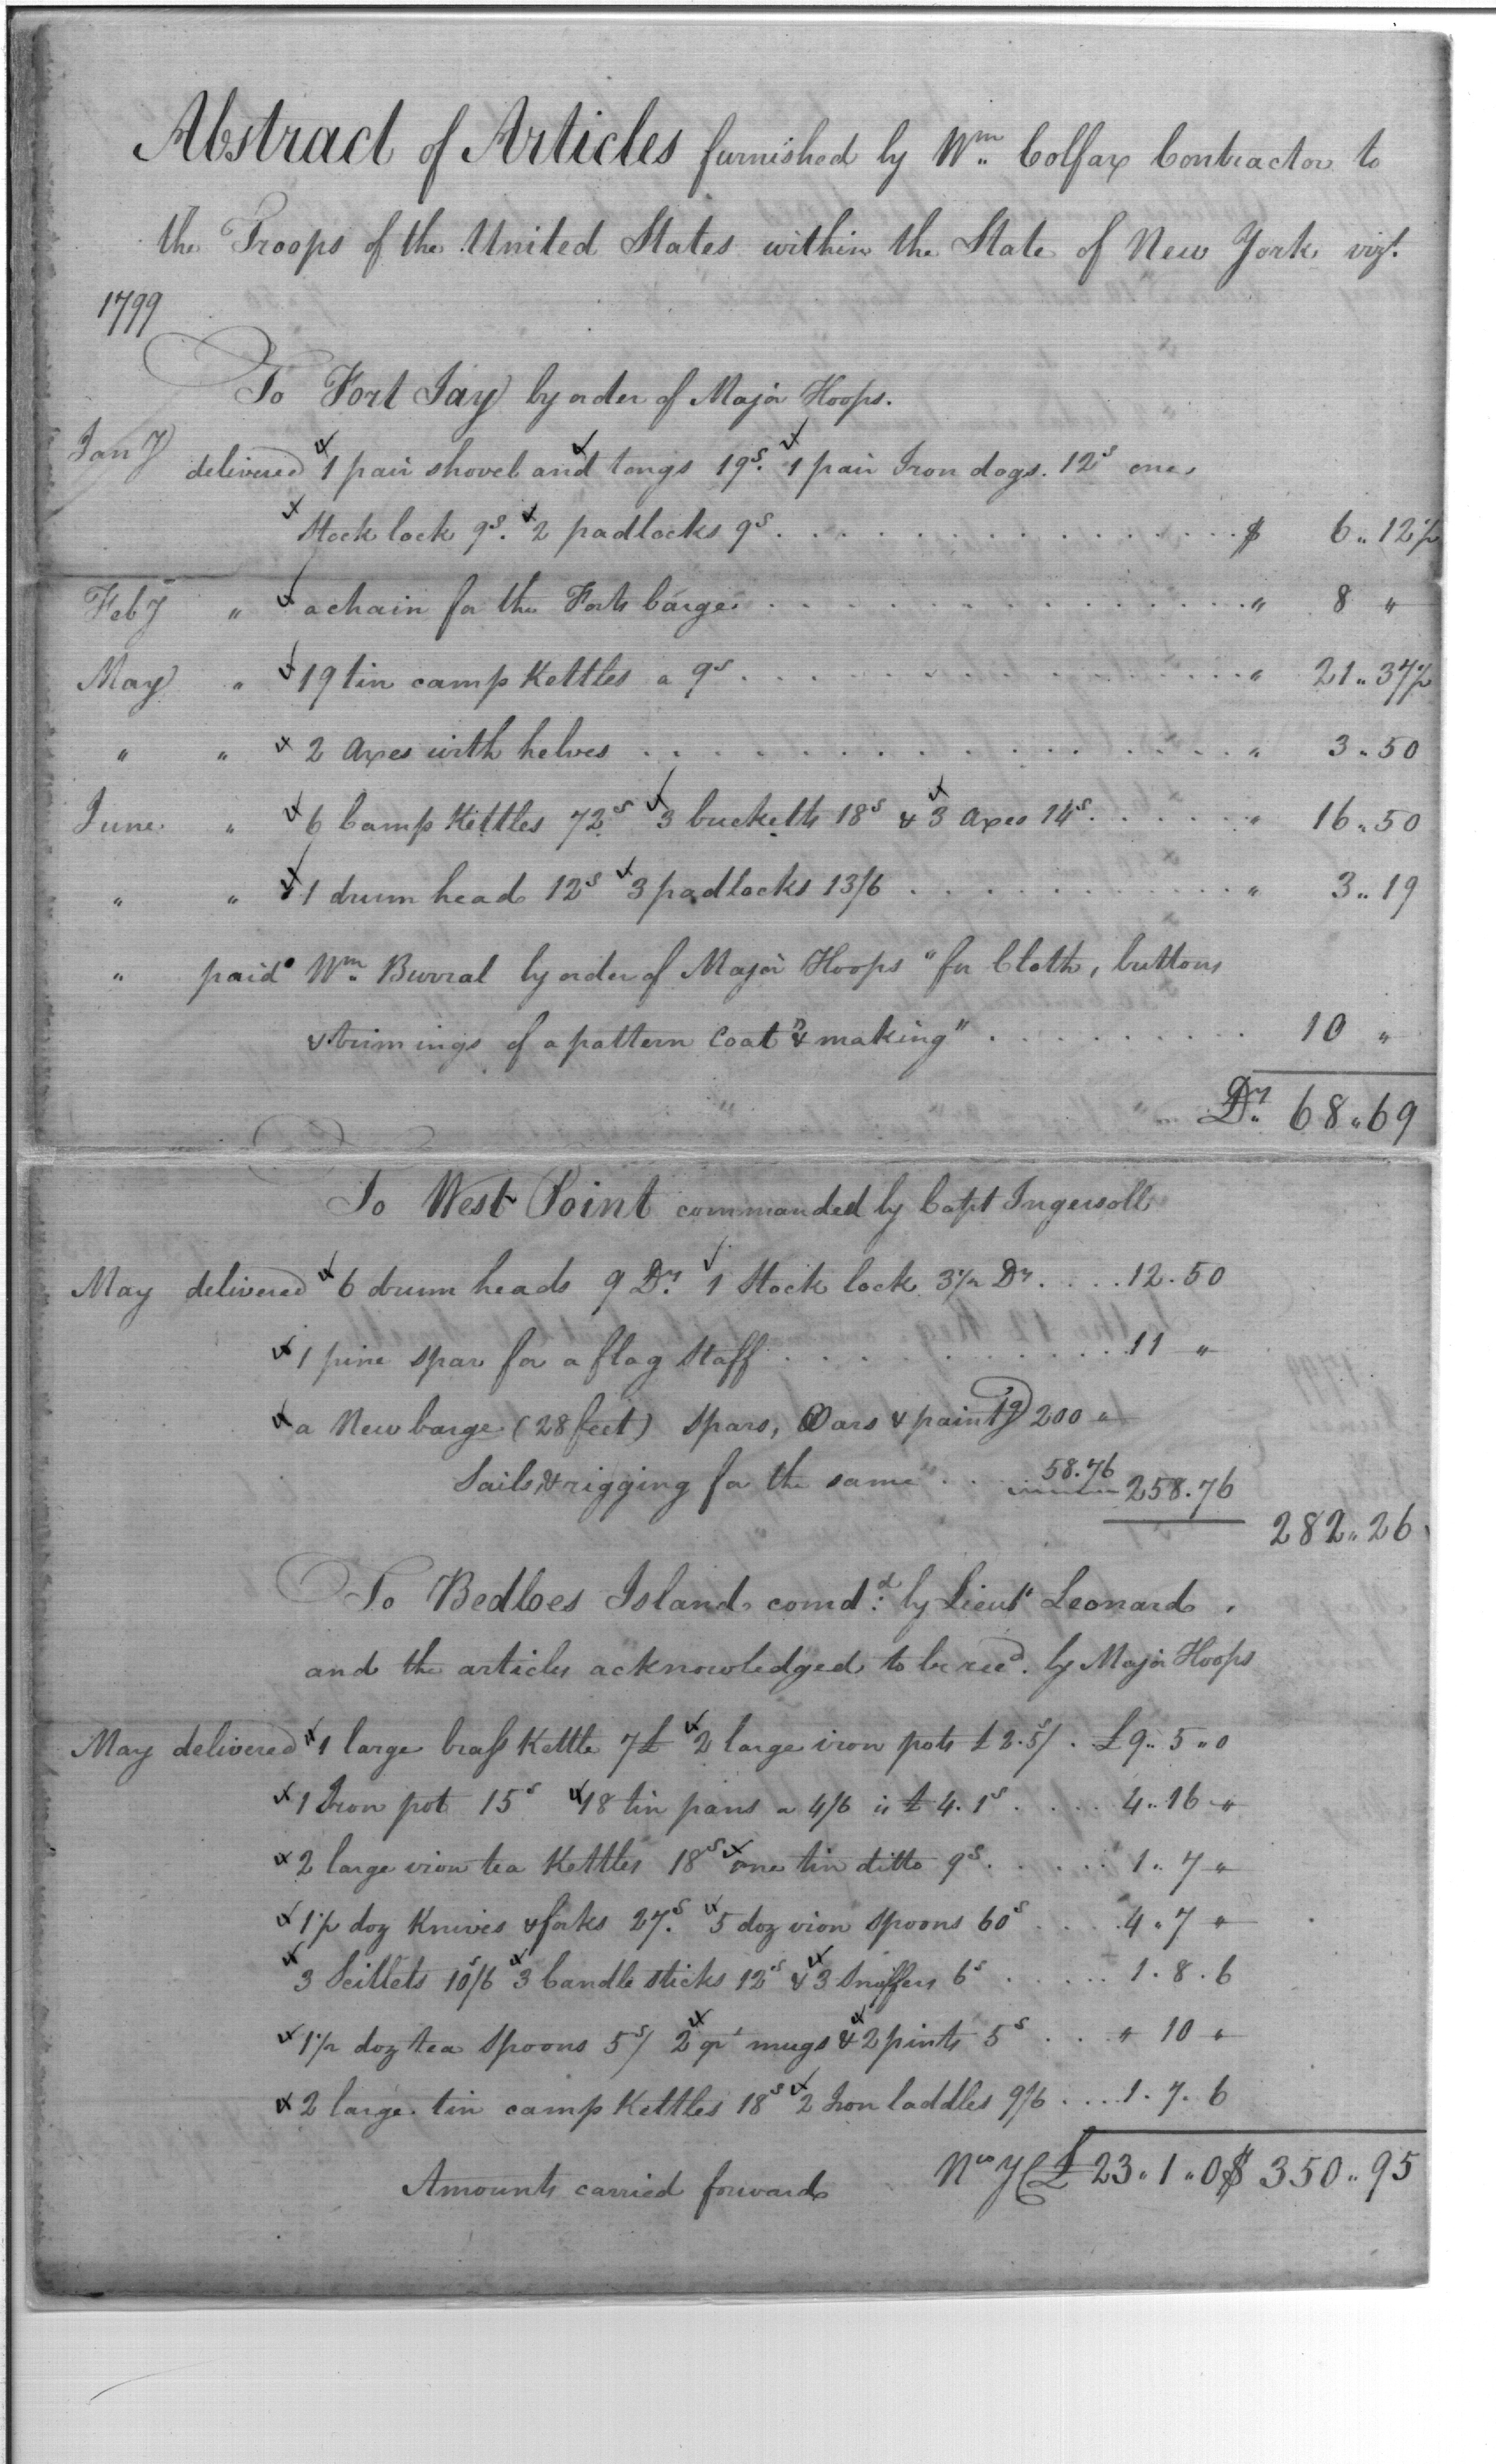 Abstract of Articles furnished by Wm. Colfax Contractor to
the Troops of the United States within the State of New York vizt.
1799
To Fort Jay by order of Major Hoops.
Jany delivered 1 pair shovel and tongs 19s. 1 pair Iron dogs. 12s one
Stock lock 9s. 2 padlocks 9s. . . . . . . $ 6 .. 12½
Feby " a chain for the Forts barge . . . . . . " 8 "
May " 19 tin camp Kettles a 9s . . . . . . " 21 .. 37½
" " 2 axes with helves . . . . . . " 3 .. 50
June " 6 Camp Kettles 72s 3 bucketts 18s & 3 axes 14s . . . . . . " 16 .. 50
" " 1 drum head 12s 3 padlocks 13/6 . . . . . . " 3 .. 19
" paid Wm. Burral by order of Major Hoops "for Cloth, buttons
& trimings of a pattern Coat & making" . . . . . . 10 "
Drs. 68 .. 69
To West Point commanded by Capt Ingersoll
May delivered 6 drum heads 9 Drs. 1 Stock lock 3½ Drs . . . . 12.50
1 pine spar for a flag staff . . . . . . 11 "
a New barge (28 feet) spars, Oars & paintg 200 "
Sails & rigging for the same . . . 58.76 258.76
282 .. 26
To Bedloes Island comdd. by Lieut Leonard,
and the articles acknowledged to be recd. by Major Hoops
May delivered 1 large brass Kettle 7£ 2 large iron pots £2.5s/ . £9 .. 5 .. 0
1 Iron pot 15s 18 tin pans a 4/6 is £4.1s . . . . 4 .. 16 "
2 large iron tea Kettles 18s one tin ditto 9s . . . . . 1 .. 7 "
1½ doz Knives & forks 27s. 5 doz iron spoons 60s . . . . 4 .. 7 "
3 Scillets 10s/6 3 Candle sticks 12s & 3 Snuffers 6s . . . . . 1 . 8 . 6
1½ doz tea spoons 5s/ 2 qt mugs & 2 pints 5s . . . " 10 "
2 large tin camp Kettles 18s 2 Iron laddles 9/6 . . . . 1 . 7 . 6
Amounts carried forward N Y C £ 23 .. 1 .. 0 $ 350 .. 95